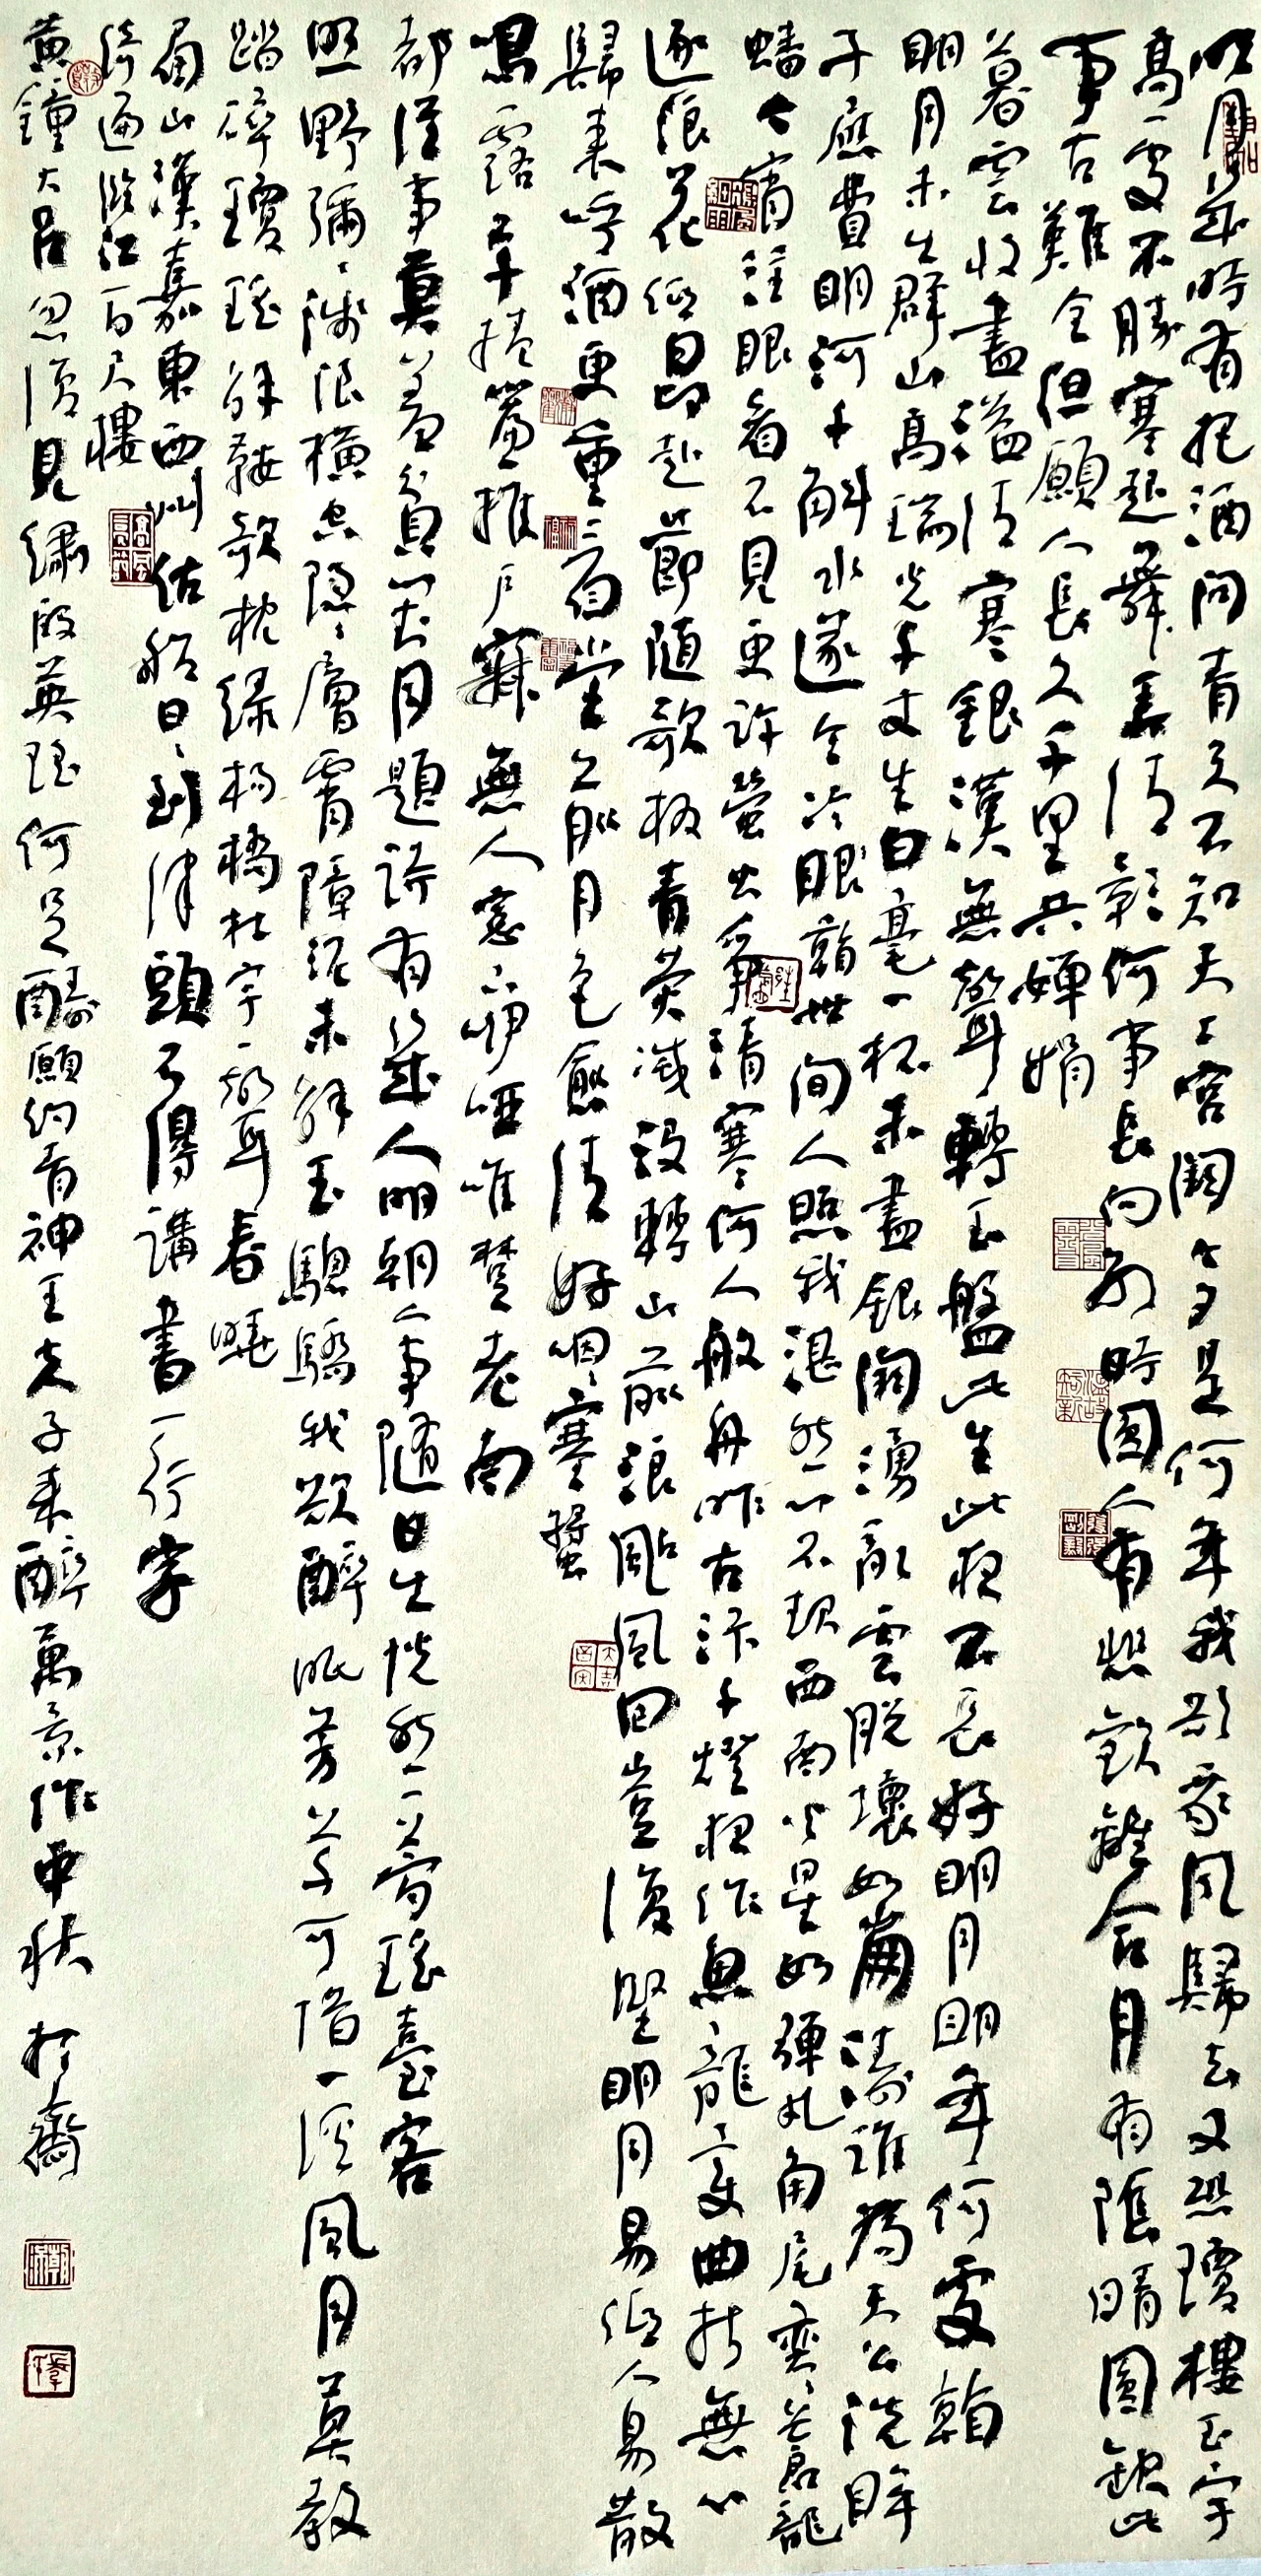 明月幾時有把酒問青天不知天上宮闕今夕是何年我欲乘風歸去又恐瓊樓玉宇
高處不勝寒起舞弄清影何事長向別時圓人有悲歡離合月有陰晴圓缺此
事古難全但願人長久千里共嬋娟
暮雲收盡溢清寒銀漢無聲轉玉盤此生此夜不長好明月明年何處看
明月未出群山高瑞光千丈生白毫一杯未盡銀闕湧亂雲脫壞如崩濤誰為天公洗眸
子應費明河千斛水遂令冷眼看世間人照我湛然心不起西南火星如彈丸角尾奕奕蒼龍
蟠今宵注眼看不見更許螢火爭清寒何人艤舟昨古汴千燈夜作魚龍變曲折無心
逐浪花低昂赴節隨歌板青熒滅沒轉山前浪颭風回豈復堅明月易低人易散
歸來呼酒更重看堂前月色愈清好咽咽寒螿
鳴露草捲簾推戶寂無人窗下咿啞唯楚老南
都從事莫羞貧對月題詩有幾人明朝人事隨日出怳然一夢瑤臺客
照野瀰瀰淺浪橫空隱隱層霄障泥未解玉驄驕我欲醉眠芳草可惜一溪風月莫教
踏碎瓊瑤解鞍欹枕綠楊橋杜宇一聲春曉
眉山漢嘉東西州估船日日到津頭不得講書一行字
倚遍臨江百尺樓
黃鐘大呂忽復見繡段英瑤何足酬願約青神王夫子來醉萬景作中秋 於齋